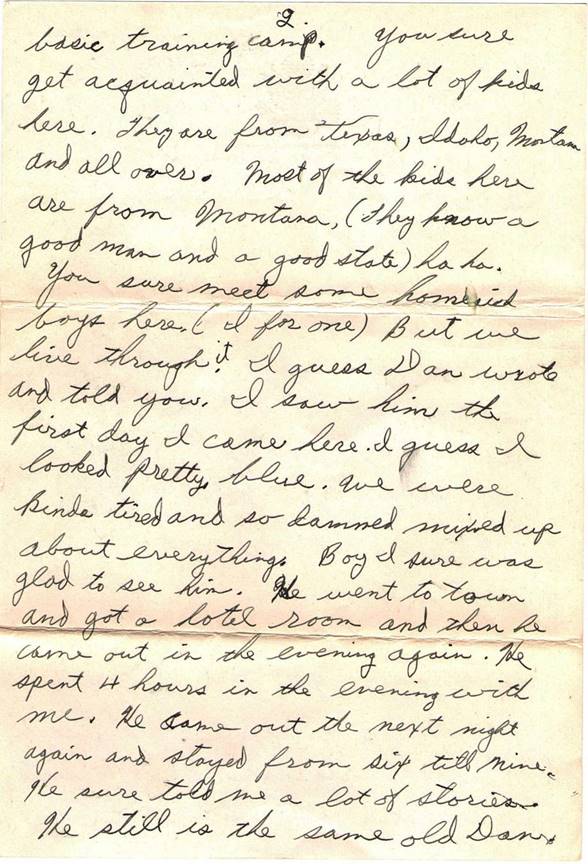 2.
basic training camp. You sure
get acquainted with a lot of kids
here. They are from Texas, Idaho, Montana
and all over. Most of the kids here
are from Montana, (they know a
good man and a good state) ha ha.
You sure meet some homesick
boys here, (I for one) But we
live through it. I guess Dan wrote
and told you. I saw him the
first day I came here. I guess I
looked pretty blue. We were
kinda tired and so damned mixed up
about everything. Boy I sure was
glad to see him. He went to town
and got a hotel room and then he
came out in the evening again. He
spent 4 hours in the evening with
me. He came out the next night
again and stayed from six till nine.
He sure told me a lot of stories.
He still is the same old Dan.